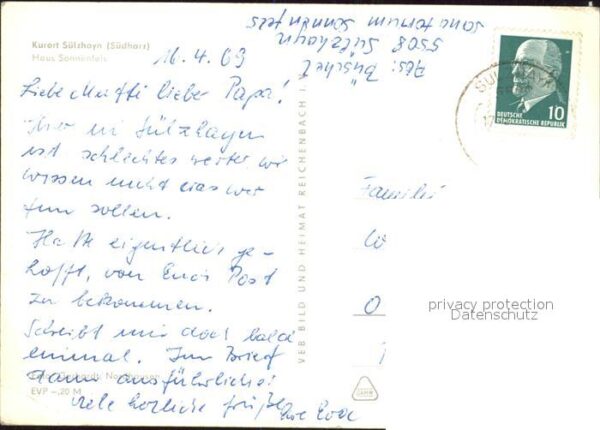 Kurort Sülzhayn (Südharz)
Haus Sonnenfels
16.4.69
Liebe Mutti lieber Papa!
Hier in Sülzhayn
ist schlechtes wetter wir
wissen nicht was wir
tun sollen.
Hatte eigentlich ge-
hofft, von Euch Post
zu bekommen.
Schreibt mir doch bald
einmal. Im Brief
dann ausführlicher
viele herzliche Grüße
Eure Eva
Nordhausen
EVP -,20 M
VEB BILD UND HEIMAT REICHENBACH I.
Abs: "Püschel"
5508 Sülzhayn
Sanatorium Sonnenfels
10
DEUTSCHE
DEMOKRATISCHE REPUBLIK
Familie
W
O
privacy protection
Datenschutz